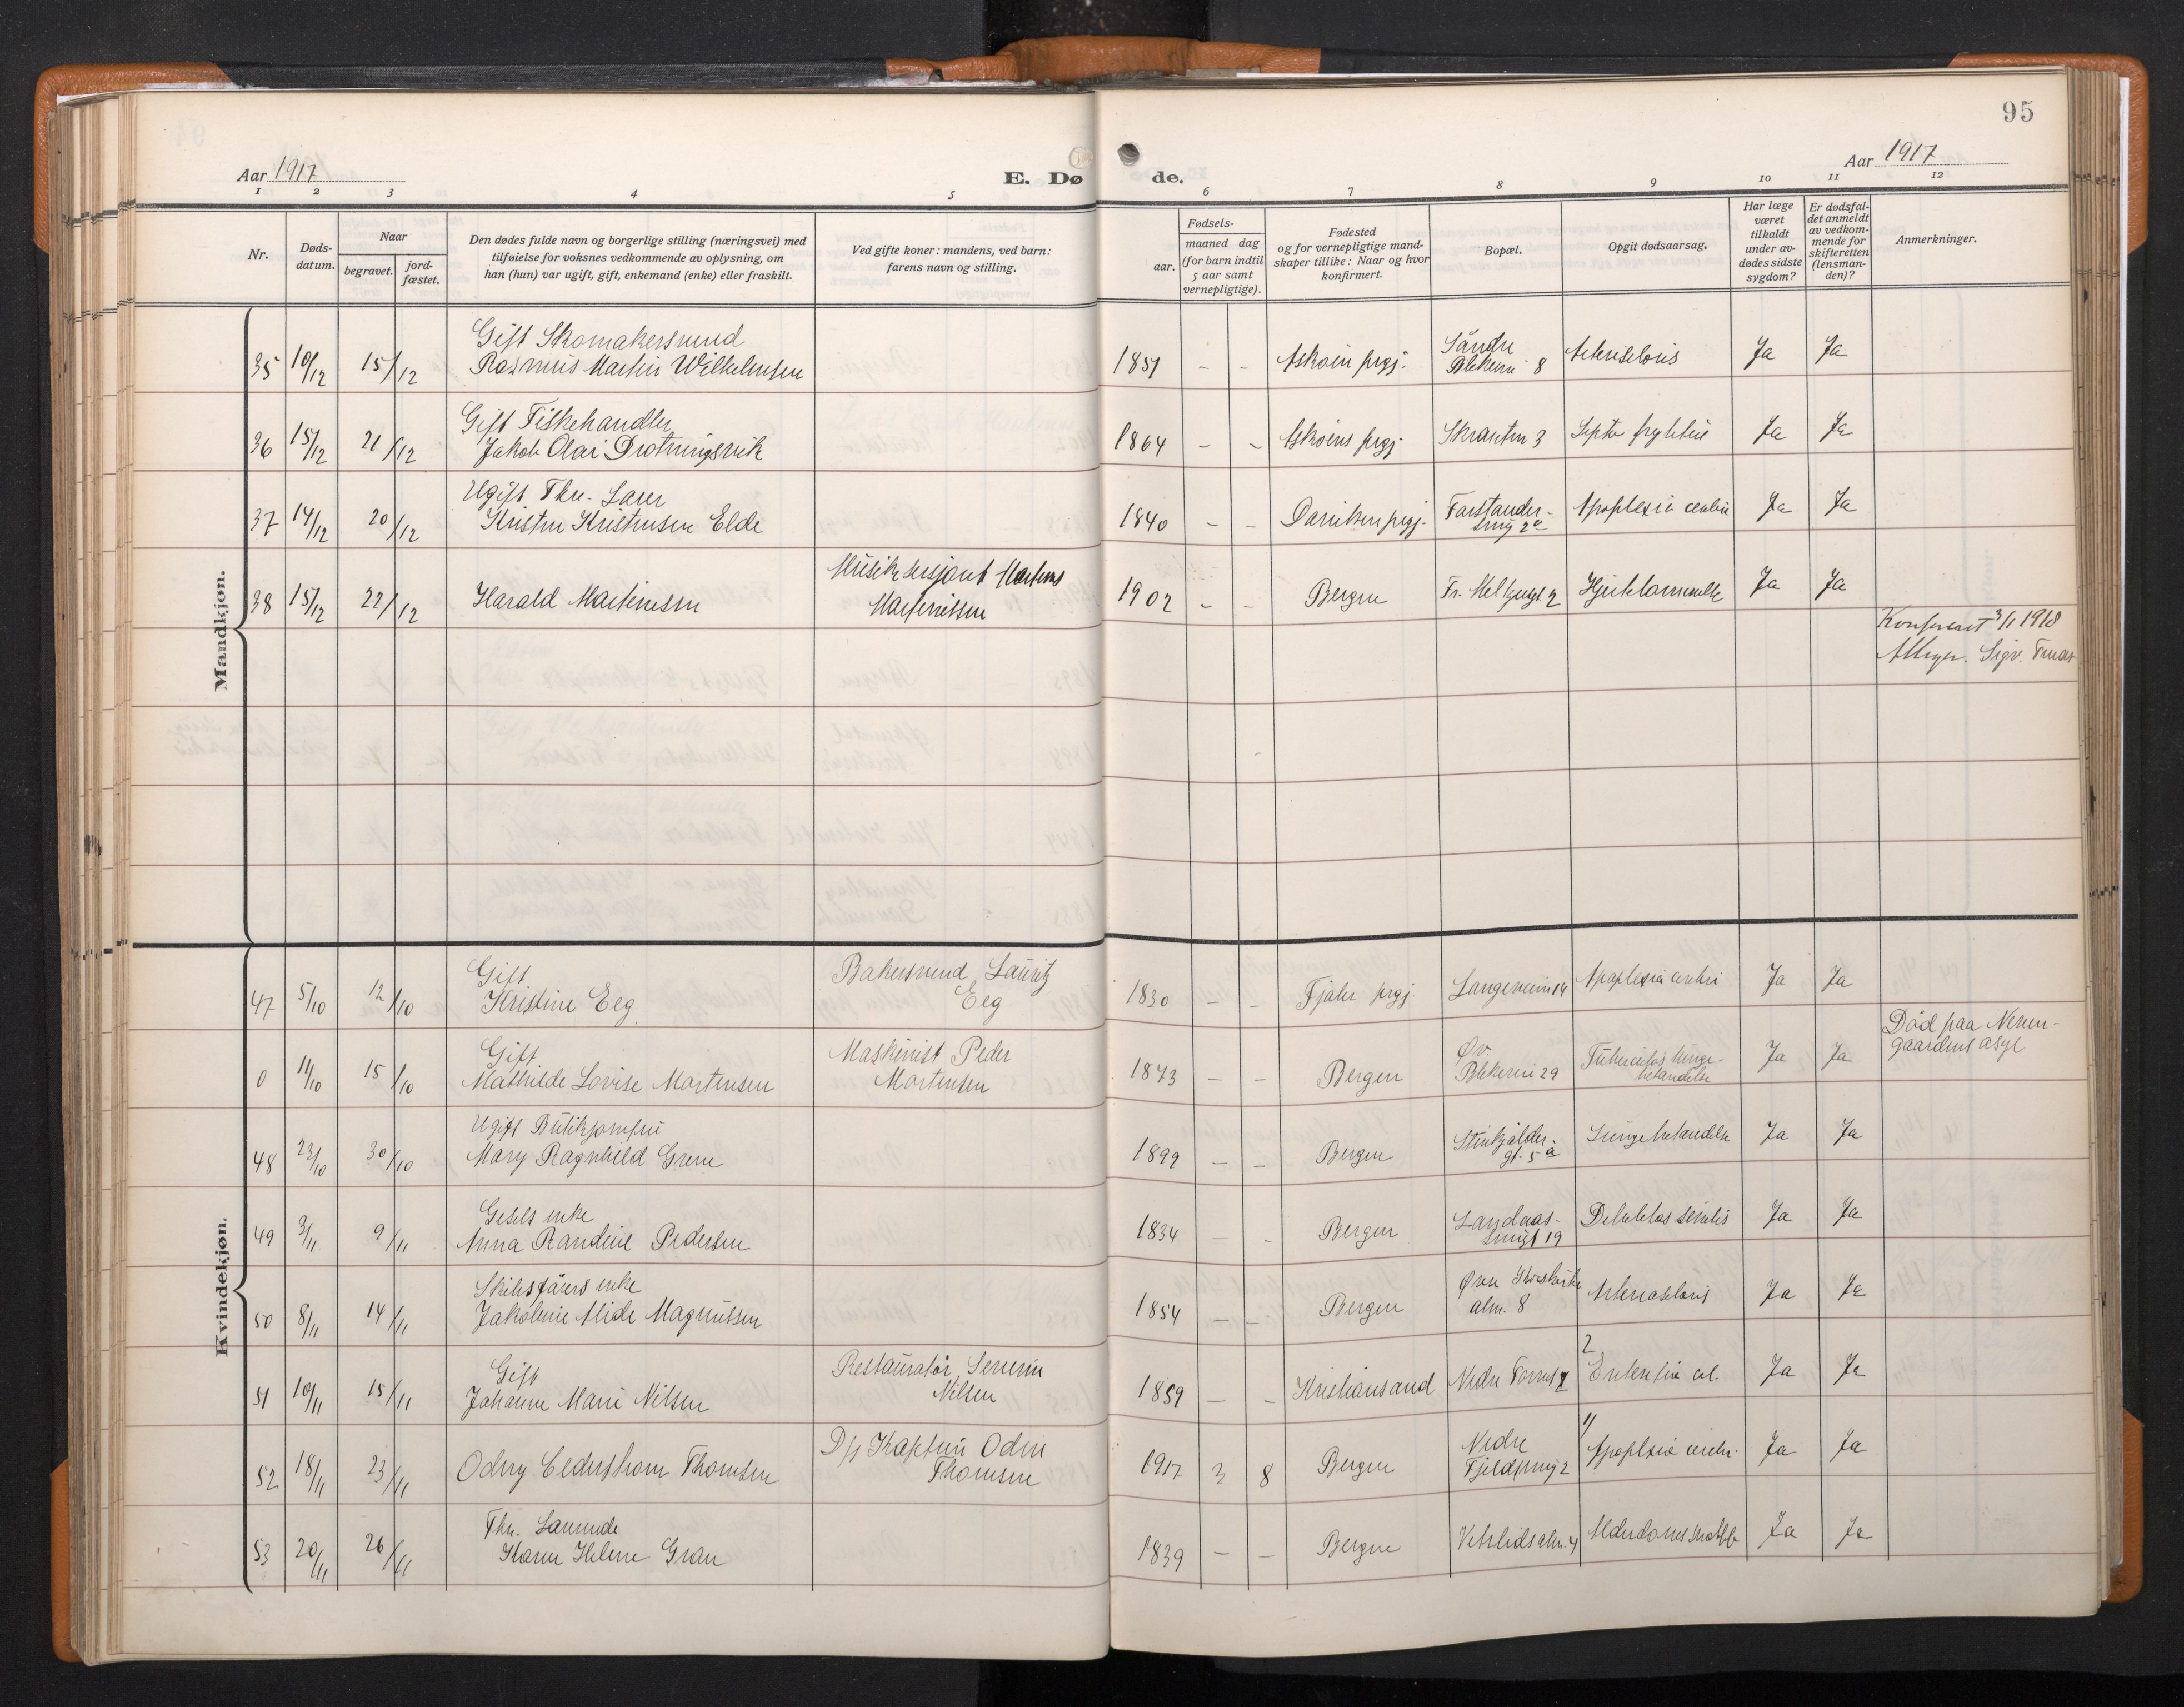 95
Aar 1917
E. Dø
de.
Aar 1917
1 2 3 4 5 6 7 8 9 10 11 12
Nr.
Døds-
datum.
Naar
begravet.
jord-
fæstet.
Den dødes fulde navn og borgerlige stilling (næringsvei) med
tilføielse for voksnes vedkommende av oplysning, om
han (hun) var ugift, gift, enkemand (enke) eller fraskilt.
Ved gifte koner: mandens, ved barn:
farens navn og stilling.
Fødsels-
aar.
maaned dag
(for barn indtil
5 aar samt
vernepligtige).
Fødested
og for vernepligtige mand-
skaper tillike: Naar og hvor
konfirmert.
Bopæl.
Opgit dødsaarsag.
Har læge
været
tilkaldt
under av-
dødes sidste
sygdom?
Er dødsfal-
det anmeldt
av vedkom-
mende for
skifteretten
(lensman-
den)?
Anmerkninger.
Mandkjøn.
Gift Skomakersvend
35 10/12 15/12 Rasmus Martin Wilhelmsen 1851 - - Askøen prgj. Søndre
Blekevei 8 Ja Ja
Gift Fiskehandler
36 15/12 21/12 Jakob Olai Drotningsvik 1864 - - Askøens prgj Skranten 3 Ja Ja
Ugift Fhv.
37 14/12 20/12 Kristen Kristensen Elde 1840 - - prgj. Forstander-
smug 2a Apoplexia cerebri Ja Ja
Musiksersjant Martens
38 15/12 22/12 Harald Martinessen Martinissen 1902 - - Bergen Fr. Meltzersgt. 2 Hjertelammelse Ja Ja
Konferert 3/1 1918
Kvindekjøn.
Gift Bakersvend Lauritz
47 5/10 12/10 Kristine Eeg Eeg 1830 - - Fjaler prgj Langeveien 14 Apoplexia cerebri Ja Ja
Død paa Neven-
gaardens asyl
Gift Maskinist Peder
0 11/10 15/10 Mathilde Lovise Mortensen Mortensen 1873 - - Bergen Øv.
Blekevei 29 Tuberculøs lunge-
betændelse Ja Ja
Ugift Butikjomfru
48 23/10 30/10 Mary Ragnhild Grene 1899 - - Bergen Stenkjælder-
gt. 5a Lungebetændelse Ja Ja
Gesels enke
49 3/11 9/11 Anna Randine Pedersen 1834 - - Bergen Landaas-
smug 19 Debilitas senilis Ja Ja
Skibsførers enke
50 8/11 14/11 Jakobine Alide Magnussen 1854 - - Bergen Øvre Korskirke
alm. 8 Ja Ja
Gift Restauratør Severin
51 10/11 15/11 Johanne Marie Nilsen Nilsen 1859 - - Kristiansand 2 Ja Ja
D/s Kaptein Odin
52 18/11 23/11 Odny Cederstrom Thomsen Thomsen 1917 3 8 Bergen Nedre
Fjeldsmug 2 1/ Apoplexia cerebri. Ja Ja
Fhv.
53 20/11 26/11 Karen Helene Gran 1839 - - Bergen Vetrlidsalm. 4 Ja Ja